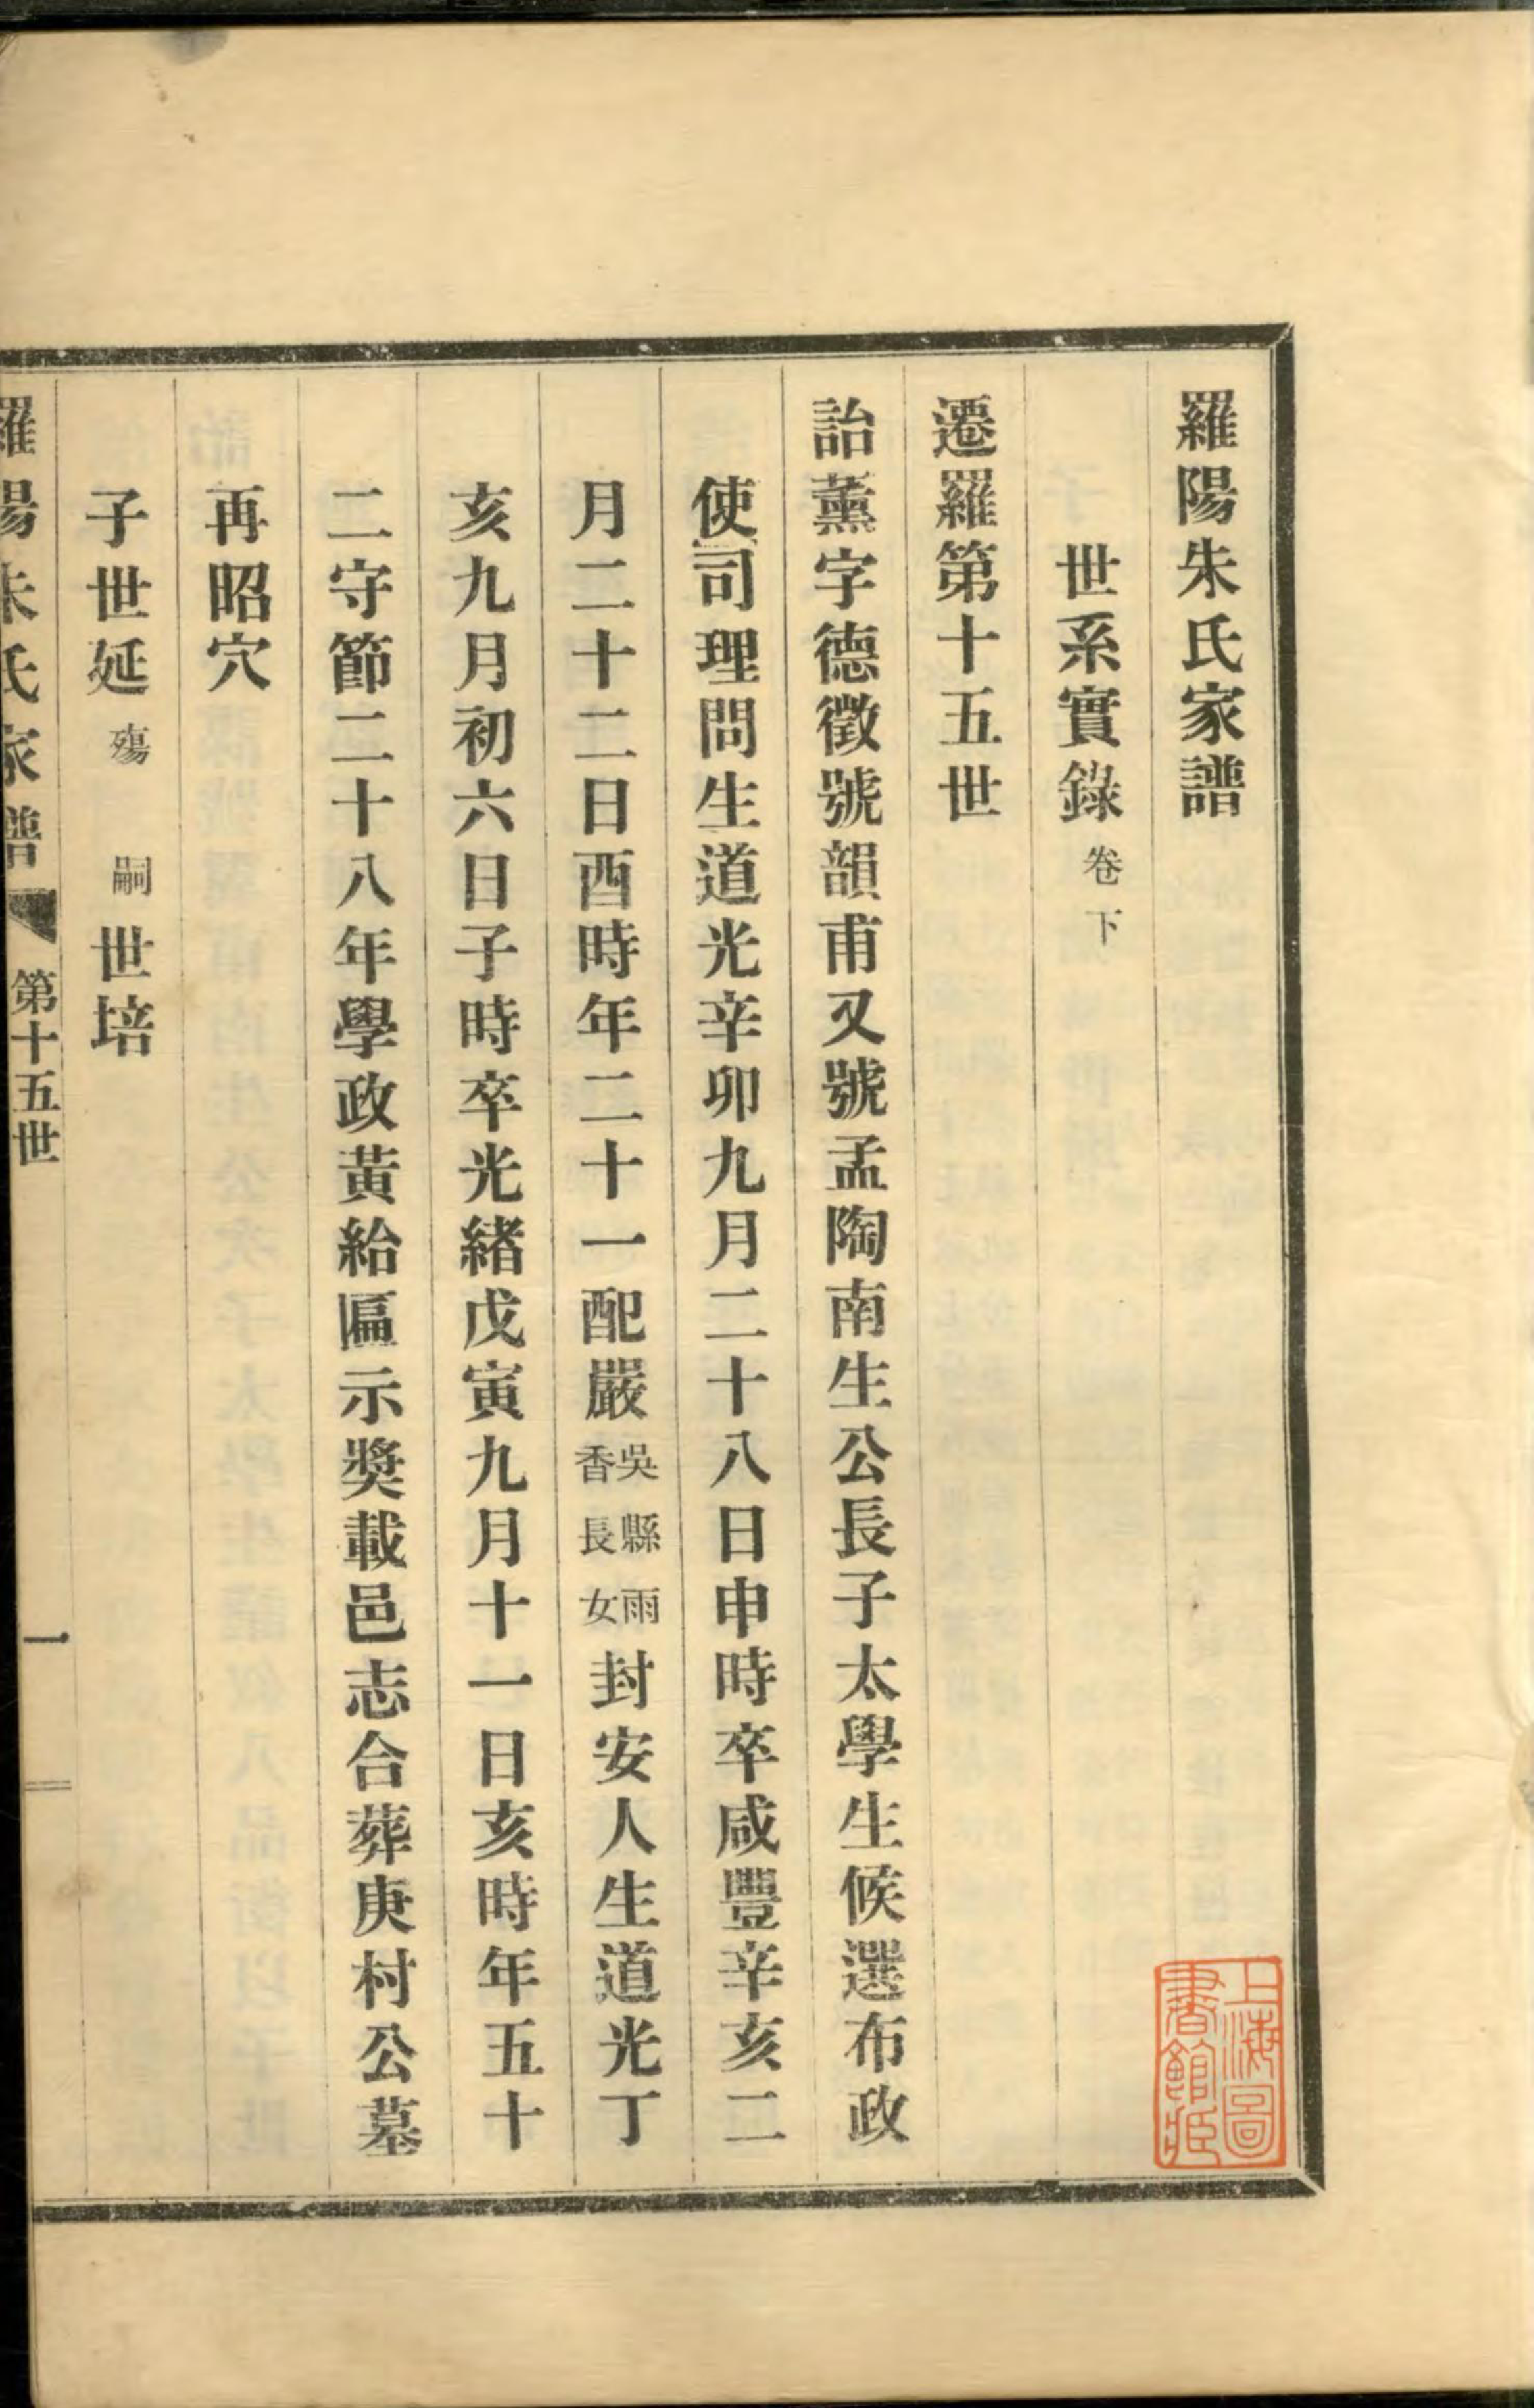 羅陽朱氏家譜
世系實錄卷下
遷羅第十五世
詒薰字德徵號韻甫又號孟陶南生公長子太學生候選布政
使司理問生道光辛卯九月二十八日申時卒咸豐辛亥二
月二十二日酉時年二十一配嚴吳縣雨香長女封安人生道光丁
亥九月初六日子時卒光緒戊寅九月十一日亥時年五十
二守節二十八年學政黃給匾示獎載邑志合葬庚村公墓
再昭穴
子世延殤 嗣世培
羅陽朱氏家譜 第十五世 一
上海圖書館藏